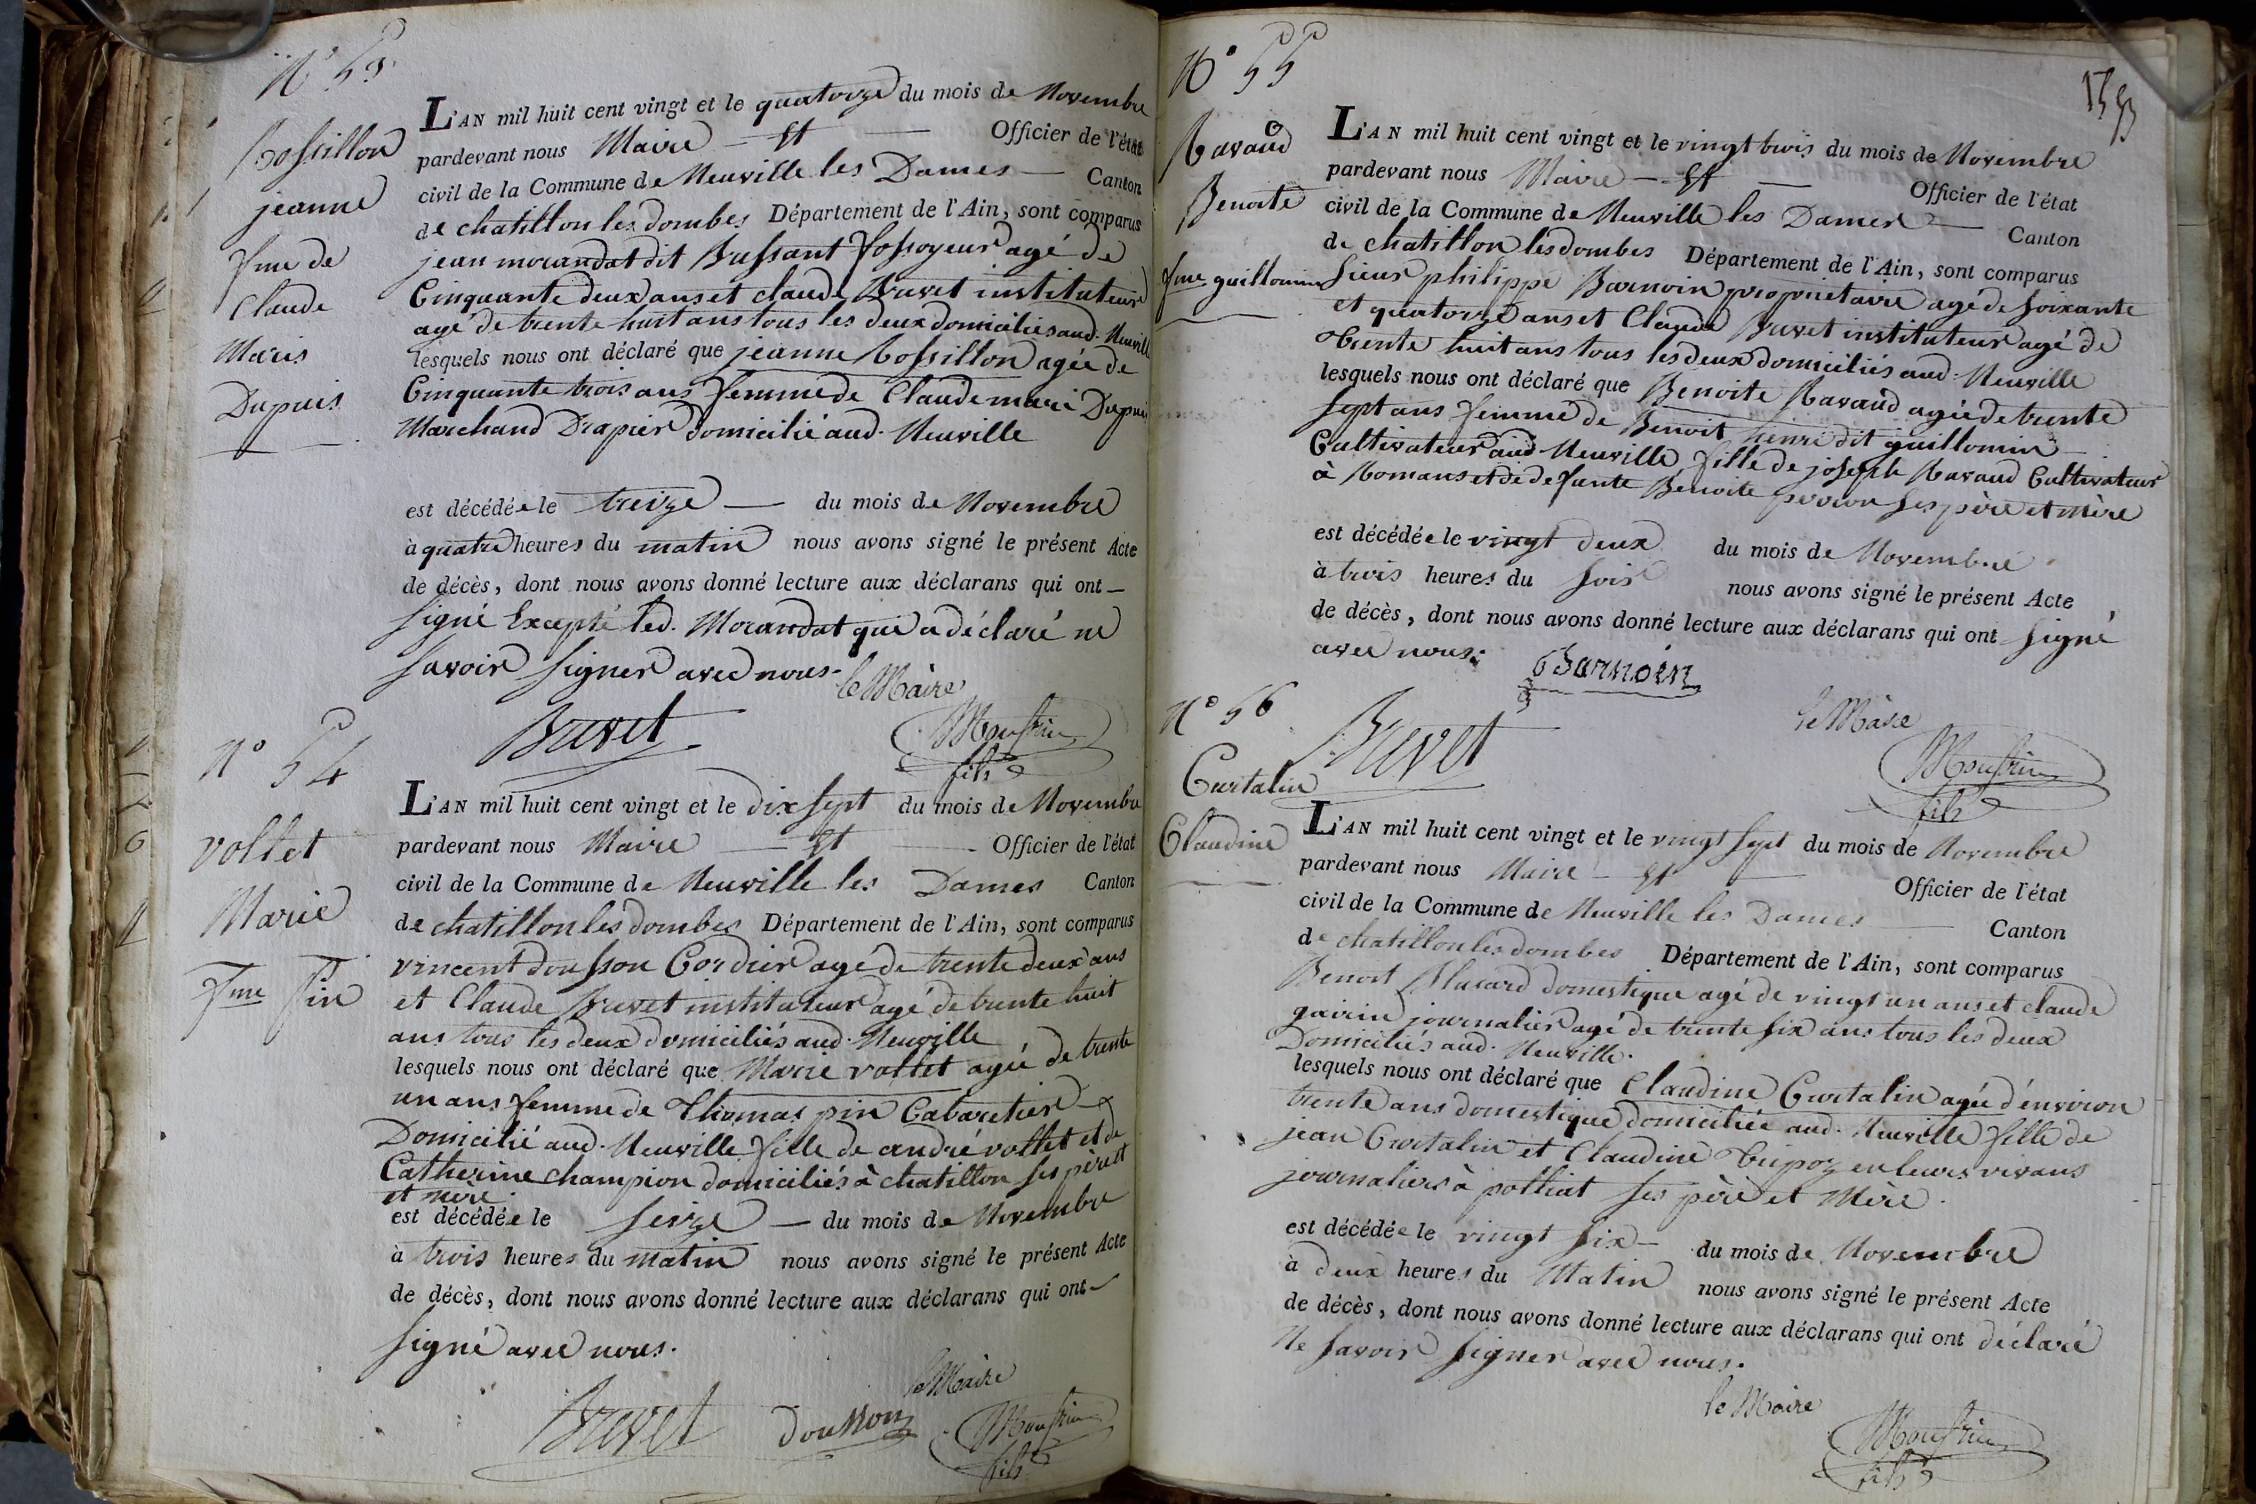 N° 53
Rossillon
jeanne
fme de
Claude
Marie
Dupuis
L'AN mil huit cent vingt et le quatorze du mois de Novembre
pardevant nous Maire — Et — Officier de l'état
civil de la Commune de Neuville les Dames — Canton
de chatillon les dombes Département de l'Ain, sont comparus
jean morandat dit Bussant fossoyeur agé de
Cinquante deux ans et claude Buvet instituteur
agé de trente huit ans tous les deux domiciliés aud. Neuville
lesquels nous ont déclaré que jeanne Rossillon agée de
Cinquante trois ans femme de Claude marie Dupuis
Marchand Drapier domicilié aud. Neuville
est décédée le treize — du mois de Novembre
à quatre heures du matin nous avons signé le présent Acte
de décès, dont nous avons donné lecture aux déclarans qui ont —
signé Excepté led. Morandat qui a déclaré ne
savoir signer avec nous.
le Maire
Buvet
fils
N° 54
vollet
Marie
Fme Pin
L'AN mil huit cent vingt et le dix sept du mois de Novembre
pardevant nous Maire — Et — Officier de l'état
civil de la Commune de Neuville les Dames Canton
de chatillon les dombes Département de l'Ain, sont comparus
vincent dousson Cordier agé de trente deux ans
et Claude Buvet instituteur agé de trente huit
ans tous les deux domiciliés aud. Neuville
lesquels nous ont déclaré que Marie vollet agée de trente
un ans femme de Thomas pin Cabaretier
Domicilié aud. Neuville fille de andré vollet et de
Catherine champion domiciliés à chatillon ses père et
et mere.
est décédée le seize — du mois de Novembre
à trois heures du matin nous avons signé le présent Acte
de décès, dont nous avons donné lecture aux déclarans qui ont —
signé avec nous.
le Maire
Buvet Dousson
fils
N° 55
Ravaud
Benoite
fme guillomin
L'AN mil huit cent vingt et le vingt trois du mois de Novembre
pardevant nous Maire — Et — Officier de l'état
civil de la Commune de Neuville les Dames — Canton
de chatillon les dombes Département de l'Ain, sont comparus
Sieur philippe Barnoin proprietaire agé de soixante
et quatorze ans et Claude Buvet instituteur agé de
trente huit ans tous les deux domiciliés aud. Neuville
lesquels nous ont déclaré que Benoite Ravaud agée de trente
sept ans femme de Benoit henri dit guillomin
Cultivateur aud. Neuville, fille de joseph Ravaud Cultivateur
à Romans et de defunte Benoite ses père et mère
est décédée le vingt deux du mois de Novembre
à trois heures du soir nous avons signé le présent Acte
de décès, dont nous avons donné lecture aux déclarans qui ont signé
avec nous.
Barnoin
le Maire
Buvet
fils
N° 56
Curtalin
Claudine
L'AN mil huit cent vingt et le vingt sept du mois de Novembre
pardevant nous Maire — Et — Officier de l'état
civil de la Commune de Neuville les Dames — Canton
de chatillon les dombes Département de l'Ain, sont comparus
Benoit domestique agé de vingt un ans et claude
journalier agé de trente six ans tous les deux
Domiciliés aud. Neuville.
lesquels nous ont déclaré que Claudine Curtalin agée d'environ
trente ans domestique domiciliée aud. Neuville fille de
jean Curtalin et Claudine en leurs vivans
journaliers à polliat ses père et Mère.
est décédée le vingt six — du mois de Novembre
à deux heures du Matin nous avons signé le présent Acte
de décès, dont nous avons donné lecture aux déclarans qui ont déclaré
Ne savoir signer avec nous.
le Maire
fils